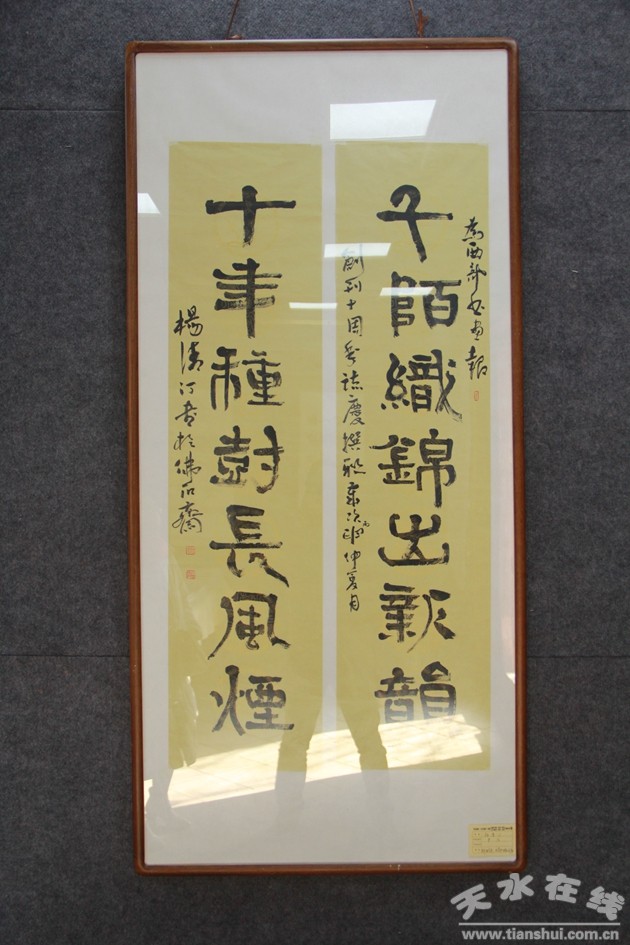 為西部書畫報
千陌織錦出新韻
創刊十周年誌慶撰聯歲次仲夏月
十年種樹長風煙
楊清汀書於佛石齋
天水在线
www.tianshui.com.cn